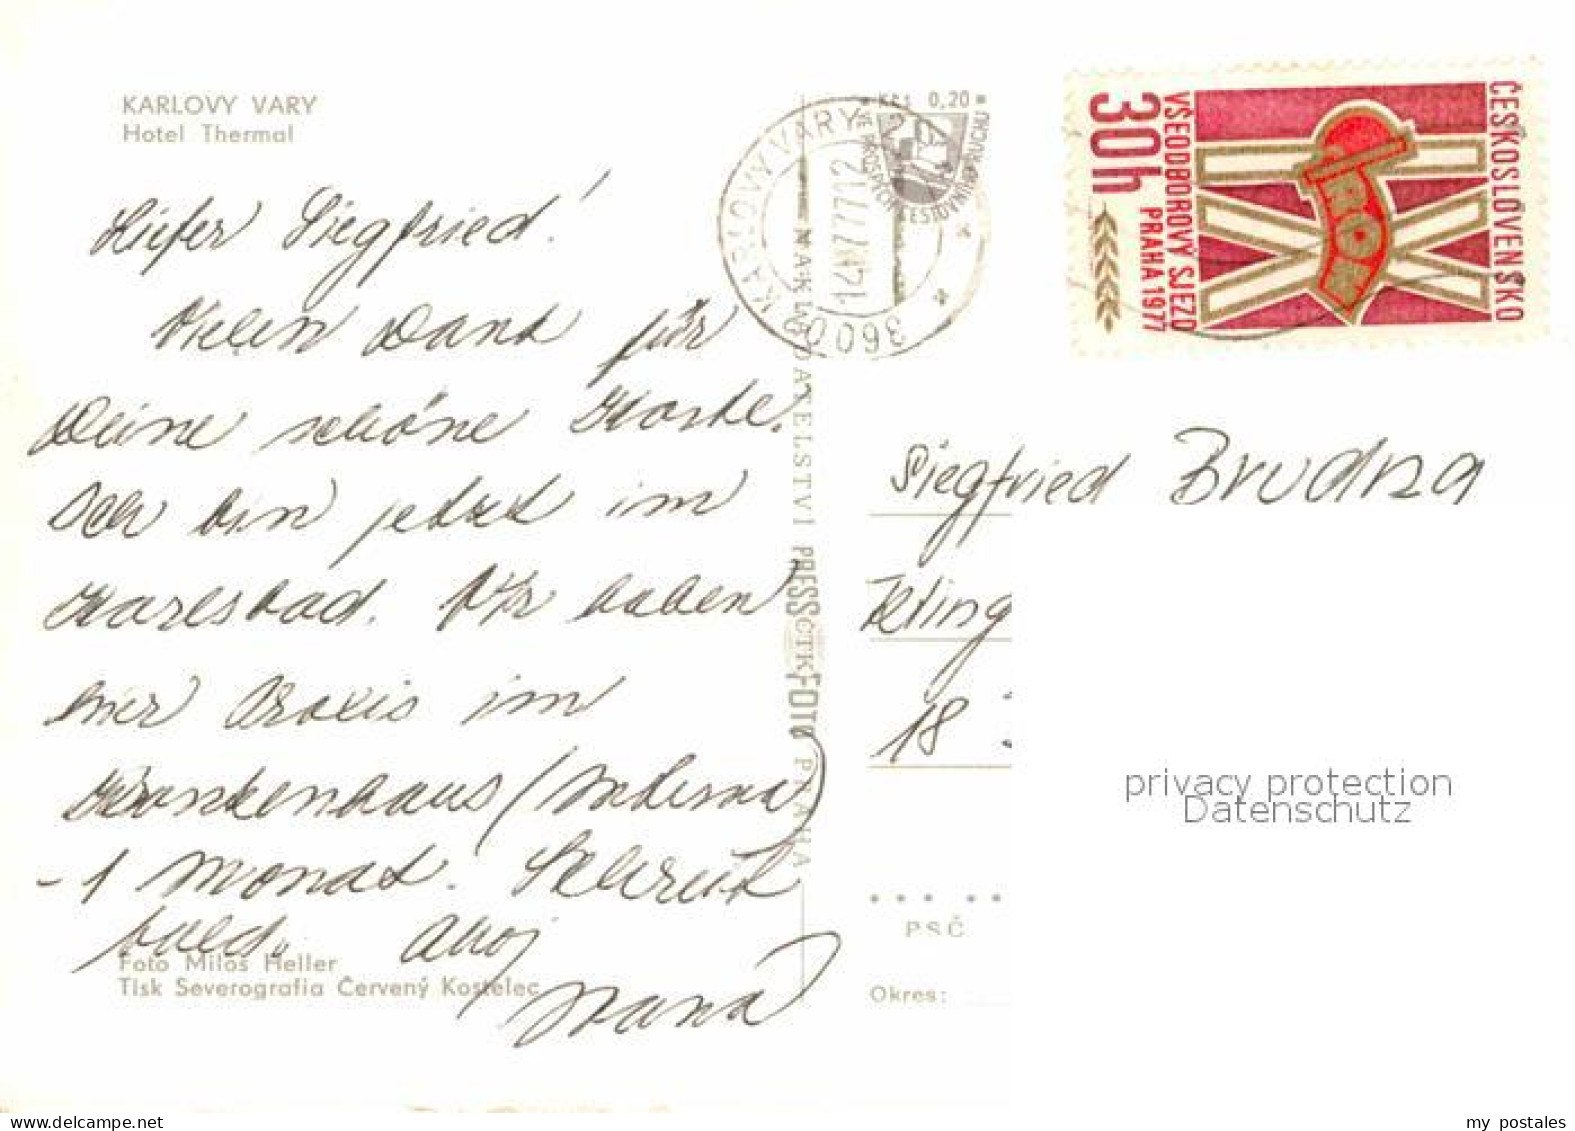 KARLOVY VARY
Hotel Thermal
Liefer Siegfried!
Vielen Dank für
Deine schöne Karte.
Ich bin jetzt im
Karlsbad. Wir haben
hier Praxis im
Krankenhaus (Interna)
- 1 Monat. Schreib
bald. Ahoj
Ivana
Foto Miloš Heller
Tisk Severografia Červený Kostelec
NAKLADATELSTVÍ PRESSFOTO ČTK PRAHA
Kčs 0,20
KARLOVY VARY 2
14.IV.77 12
36000
ČESKOSLOVENSKO
VŠEODBOROVÝ SJEZD
PRAHA 1977
30h
ROH
Siegfried Brudna
Kling
18
privacy protection
Datenschutz
PSČ
Okres:
delcampe.net
my_postales